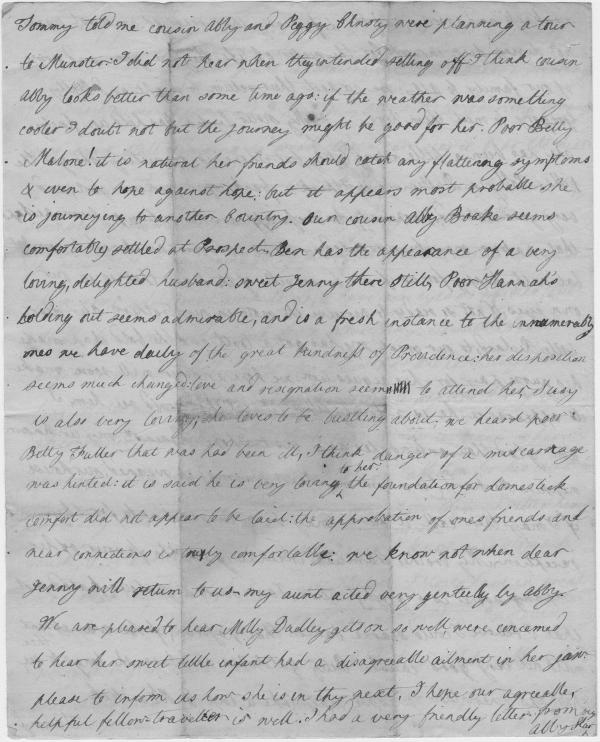 Tommy told me cousin Abby and Peggy Christy were planning a tour
to Munster: I did not hear when they intended setting off I think cousin
Abby looks better than some time ago: if the weather was something
cooler I doubt not but the journey might be good for her. Poor Betty
Malone! it is natural her friends should catch any flattering symptoms
& even to hope against hope: but it appears most probable she
is journeying to another Country. Our cousin Abby Boake seems
comfortably settled at Prospect, Ben has the appearance of a very
loving, delighted husband: sweet Jenny there still, Poor Hannah's
holding out seems admirable, and is a fresh instance to the innumerable
ones we have daily of the great kindness of Providence: her disposition
seems much changed: love and resignation seem to attend her, Suzy
is also very loving, she loves to be bustling about: we heard poor
Betty Fuller that was had been ill, I think danger of a miscarriage
was hinted: it is said he is very loving to her the foundation for domestick
comfort did not appear to be laid: the approbation of ones friends and
near connections is truly comfortable: we know not when dear
Jenny will return to us - my aunt acted very genteelly by Abby.
We are pleased to hear Molly Dudley gets on so well, were concerned
to hear her sweet little infant had a disagreeable ailment in her jaw:
please to inform us how she is in thy next, I hope our agreeable,
helpful fellow-traveller is well. I had a very friendly letter from my
Abby